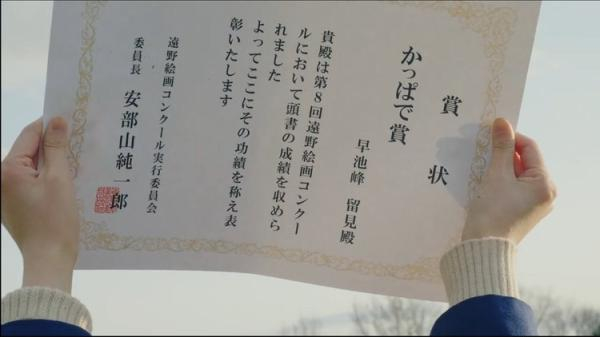 賞状
かっぱで賞
早池峰 留見殿
貴殿は第8回遠野絵画コンクー
ルにおいて頭書の成績を収めら
れました
よってここにその功績を称え表
彰いたします
遠野絵画コンクール実行委員会
委員長 安部山純一郎